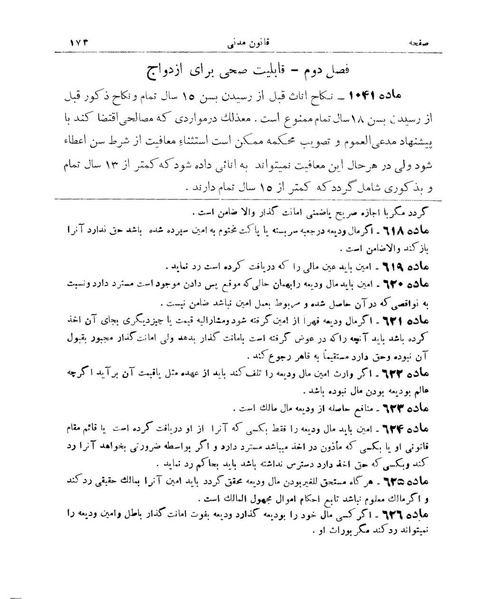 صفحه قانون مدنی ۱۷۳
فصل دوم - قابلیت صحی برای ازدواج
ماده ۱۰۴۱ - نکاح اناث قبل از رسیدن بسن ۱۵ سال تمام و نکاح ذکور قبل
از رسیدن بسن ۱۸ سال تمام ممنوع است . معذلک درمواردی که مصالحی اقتضا کند با
پیشنهاد مدعی‌العموم و تصویب محکمه ممکن است استثناءً معافیت از شرط سن اعطاء
شود ولی در هرحال این معافیت نمیتواند به اناثی داده شود که کمتر از ۱۳ سال تمام
و بذکوری شامل گردد که کمتر از ۱۵ سال تمام دارند .
گردد مگربا اجازه صریح یاضمنی امانت گذار والا ضامن است .
ماده ۶۱۸ - اگرمال ودیعه درجعبه سربسته یا پاکت مختوم به امین سپرده شده باشد حق ندارد آنرا
بازکند والاضامن است .
ماده ۶۱۹ - امین باید عین مالی را که دریافت کرده است رد نماید .
ماده ۶۲۰ - امین باید مال ودیعه رابهمان حالی‌که موقع پس دادن موجود است مسترد دارد ونسبت
به نواقصی که درآن حاصل شده و مربوط بعمل امین نباشد ضامن نیست .
ماده ۶۲۱ - اگرمال ودیعه قهرا از امین گرفته شود ومشارالیه قیمت یا چیزدیگری بجای آن اخذ
کرده باشد باید آنچه راکه در عوض گرفته است بامانت گذار بدهد ولی امانت‌گذار مجبور بقبول
آن نبوده وحق دارد مستقیماً به قاهر رجوع کند .
ماده ۶۲۲ - اگر وارث امین مال ودیعه را تلف کند باید از عهده مثل یاقیمت آن برآید اگرچه
عالم بودیعه بودن مال نبوده باشد .
ماده ۶۲۳ - منافع حاصله از ودیعه مال مالک است .
ماده ۶۲۴ - امین باید مال ودیعه را فقط بکسی که آنرا از او دریافت کرده است یا قائم مقام
قانونی او یا بکسی که مأذون در اخذ میباشد مسترد دارد و اگر بواسطه ضرورتی بخواهد آنرا رد
کند وبکسی که حق اخذ دارد دسترس نداشته باشد باید بحاکم رد نماید .
ماده ۶۲۵ - هرگاه مستحق للغیربودن مال ودیعه محقق گردد باید امین آنرا بمالک حقیقی ردکند
و اگرمالک معلوم نباشد تابع احکام اموال مجهول المالک است .
ماده ۶۲۶ - اگرکسی مال خود را بودیعه گذارد ودیعه بفوت امانت‌گذار باطل وامین ودیعه را
نمیتواند ردکند مگر بوراث او .